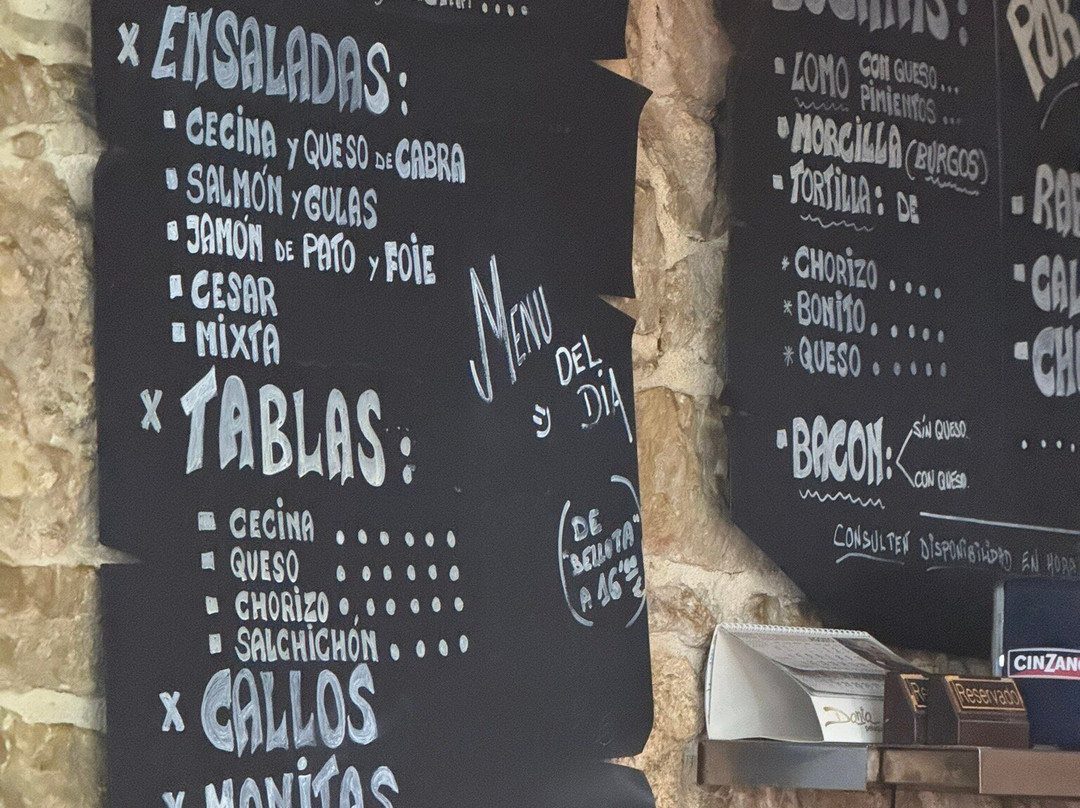 X ENSALADAS:
CECINA Y QUESO DE CABRA
SALMÓN Y GULAS
JAMÓN DE PATO Y FOIE
CESAR
MIXTA
X TABLAS:
CECINA ......
QUESO ......
CHORIZO ......
SALCHICHÓN ....
X CALLOS
X MANITAS
MENU
DEL
DIA
(DE
"BELLOTA"
A 16'00 €)
LOMO CON QUESO...
PIMIENTOS...
MORCILLA (BURGOS)
TORTILLA: DE
* CHORIZO ....
* BONITO .....
* QUESO .....
BACON: SIN QUESO.
CON QUESO.
CONSULTEN DISPONIBILIDAD EN HORA
POR
CINZANO
Reservado